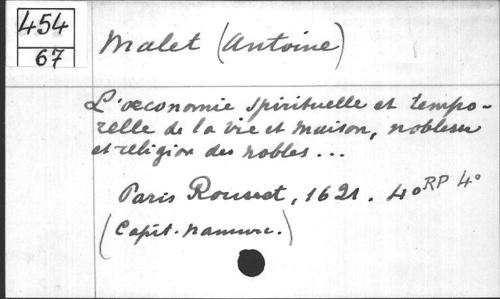 454
67
Malet (Antoine)
L'œconomie spirituelle et tempo-
relle de la vie et maison, noblesse
et religion des nobles...
Paris Rousset, 1621. 4o RP 4°
(Capit. namurc.)